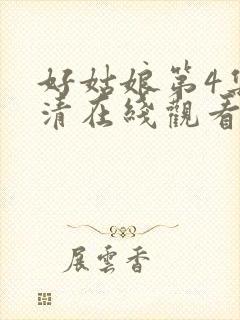 好姑娘第4集
清在綫觀看
展雲香